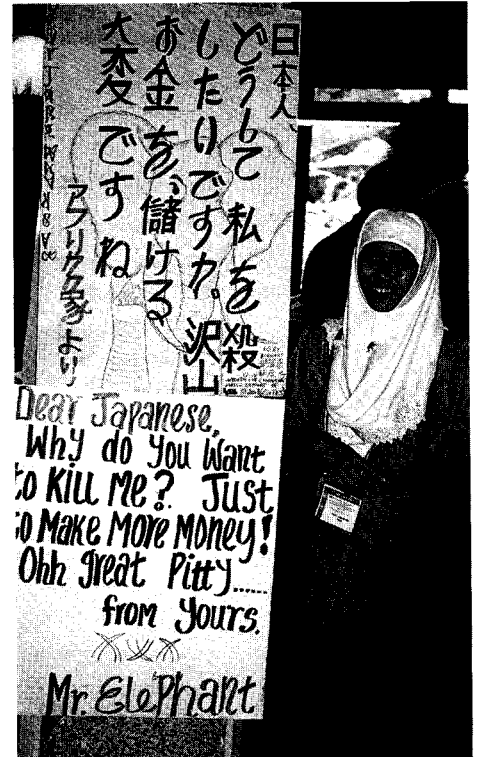 日本人、
どうして 私を殺
したいですか。沢山
お金を、儲ける
大変ですね
アフリカ家より
Dear Japanese,
Why do you want
to Kill Me? Just
to Make More Money!
Ohh great Pitty......
from yours.
Mr. Elephant